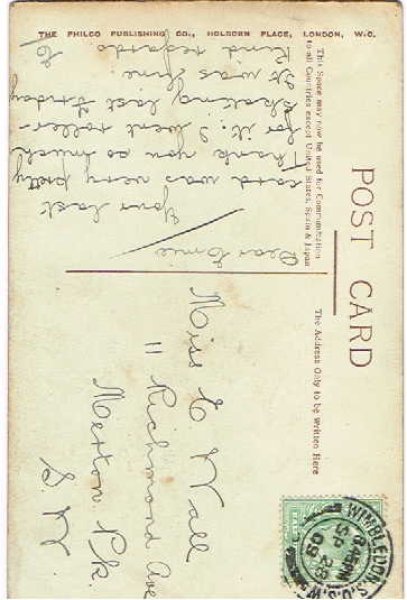 THE PHILCO PUBLISHING CO., HOLBORN PLACE, LONDON, W.C.
POST CARD
This Space may now be used for Communication
to all Countries except United States, Spain & Japan
The Address Only to be Written Here
Dear Ernie
Your last
card was very pretty
Thank you so much
for it. I went roller-
skating last Friday
It was fine.
Kind regards
E
Miss E Wall
11 Richmond Ave
Merton Pk.
S.W
WIMBLEDON S.O. S.W
8.45PM
SP 29
09